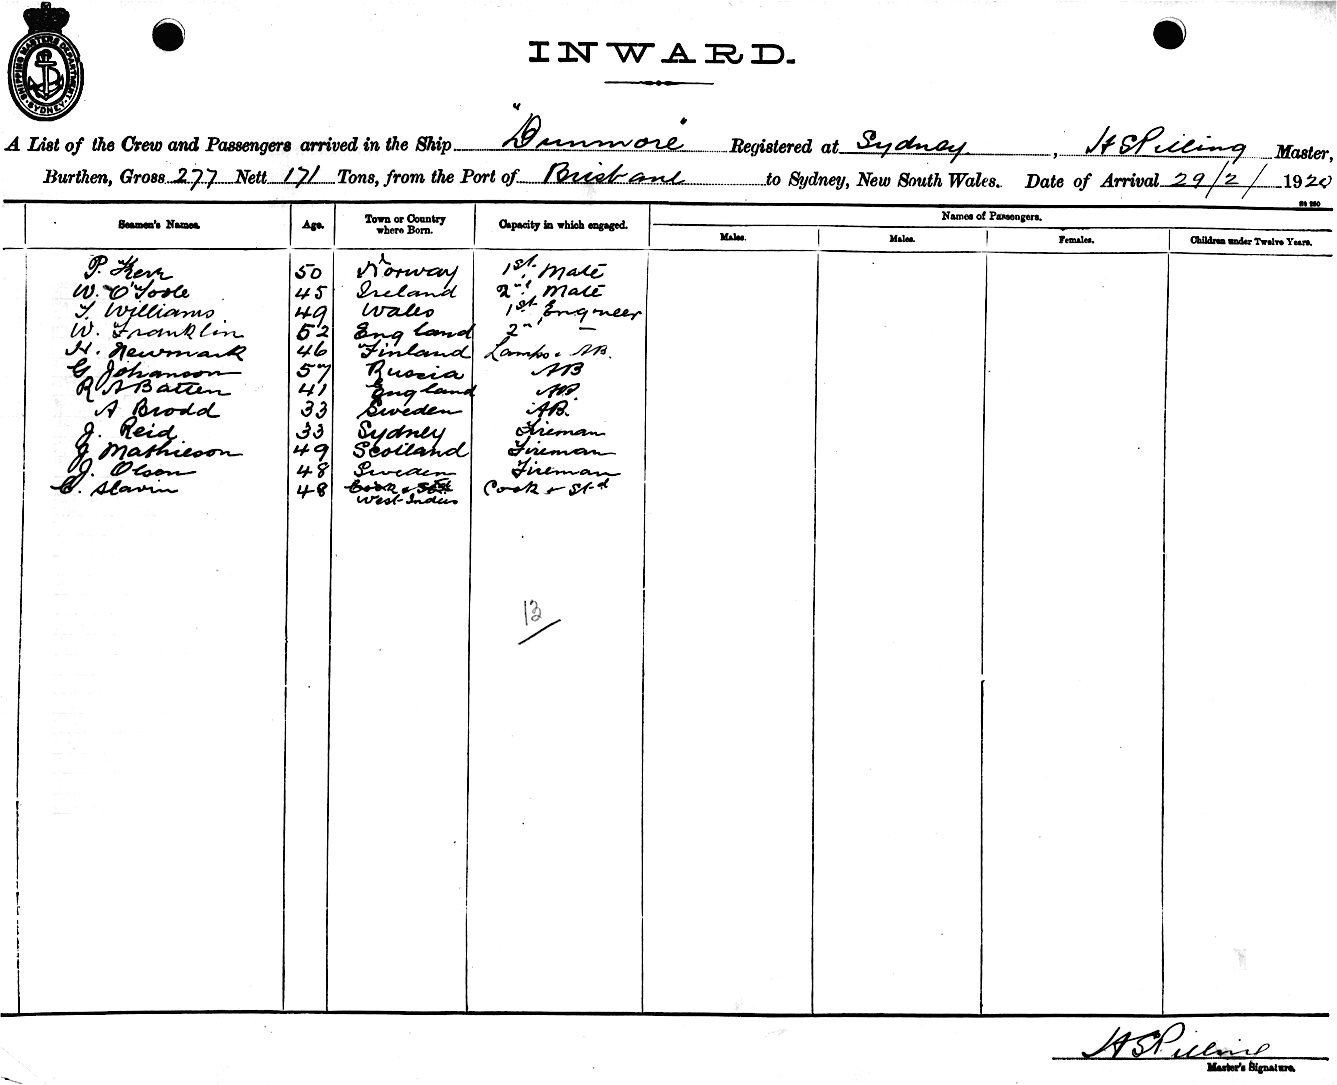 SHIPPING MASTERS DEPARTMENT SYDNEY
INWARD.
A List of the Crew and Passengers arrived in the Ship "Dunmore" Registered at Sydney, H S Pilling Master,
Burthen, Gross 277 Nett 171 Tons, from the Port of Brisbane to Sydney, New South Wales. Date of Arrival 29/2/1920
Seamen's Names. Age. Town or Country where Born. Capacity in which engaged. Names of Passengers.
Males. Males. Females. Children under Twelve Years.
P. Kerr 50 Norway 1st Mate
W. O'Toole 45 Ireland 2nd Mate
T. Williams 49 Wales 1st Engneer
W. Franklin 52 England 2nd —
H. Newmark 46 Finland Lamps & AB.
G Johanson 57 Russia AB
R A Batten 41 England AB
A Brodd 33 Sweden AB.
J. Reid 33 Sydney Fireman
J Mathieson 49 Scotland Fireman
J. Olson 48 Sweden Fireman
C. Slavin 48 Cook & Std Cook & Std
West Indies
13
H S Pilling
Master's Signature.